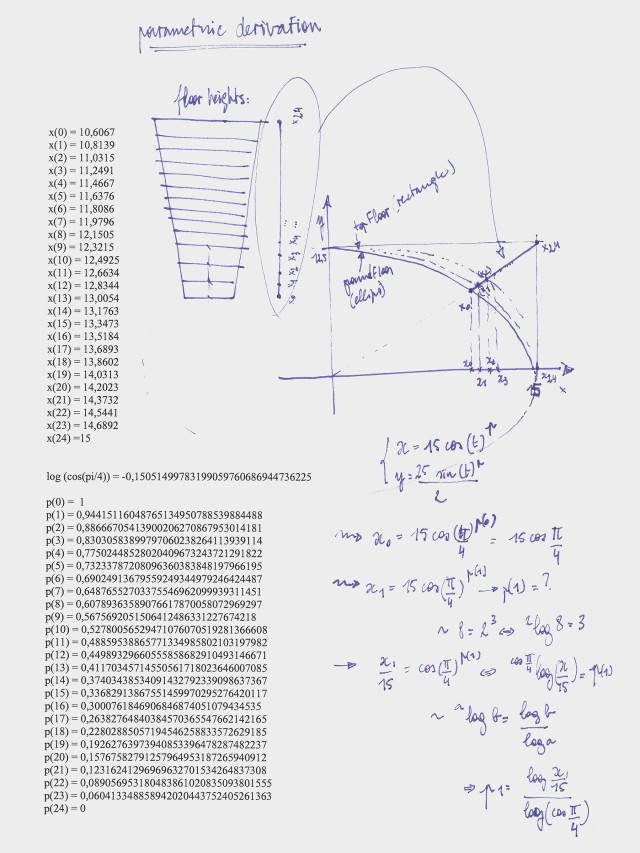 parametric derivation
floor heights:
x(0) = 10,6067
x(1) = 10,8139
x(2) = 11,0315
x(3) = 11,2491
x(4) = 11,4667
x(5) = 11,6376
x(6) = 11,8086
x(7) = 11,9796
x(8) = 12,1505
x(9) = 12,3215
x(10) = 12,4925
x(11) = 12,6634
x(12) = 12,8344
x(13) = 13,0054
x(14) = 13,1763
x(15) = 13,3473
x(16) = 13,5184
x(17) = 13,6893
x(18) = 13,8602
x(19) = 14,0313
x(20) = 14,2023
x(21) = 14,3732
x(22) = 14,5441
x(23) = 14,6892
x(24) =15
x24
y
12,5
top floor (rectangle)
groundfloor
(ellips)
x24
x0
x0 x1 x2 x3 15 x24
x
log (cos(pi/4)) = -0,15051499783199059760686944736225
p(0) = 1
p(1) = 0,94415116048765134950788539884488
p(2) = 0,88666705413900206270867953014181
p(3) = 0,83030583899797060238264113939114
p(4) = 0,77502448528020409673243721291822
p(5) = 0,73233787208096360383848197966195
p(6) = 0,69024913679559249344979246424487
p(7) = 0,64876552703375546962099939311451
p(8) = 0,60789363589076617870058072969297
p(9) = 0,5675692051506412486331227674218
p(10) = 0,52780056529471076070519281366608
p(11) = 0,48859538865771334985802103197982
p(12) = 0,44989329660555858682910493146671
p(13) = 0,41170345714550561718023646007085
p(14) = 0,37403438534091432792339098637367
p(15) = 0,33682913867551459970295276420117
p(16) = 0,3000761846906846874051079434535
p(17) = 0,26382764840384570365547662142165
p(18) = 0,22802885057194546258833572629185
p(19) = 0,19262763973940853396478287482237
p(20) = 0,15767582791257964953187265940912
p(21) = 0,12316241296969632701534264837308
p(22) = 0,08905695318048386102083509380155​5
p(23) = 0,06041334885894202044375240526136​3
p(24) = 0
x = 15 cos(t)^p
y = 25 sin(t)^p
2
x0 = 15 cos(π/4)^p(0) = 15 cos π/4
x1 = 15 cos(π/4)^p(1) → p(1) = ?
~ 8 = 2^3 ⇔ ²log 8 = 3
→ x1/15 = cos(π/4)^p(1) ⇔ cos π/4 log(x1/15) = p(1)
~ ᵃlog b = log b / log a
⇒ p1 = log x1/15 / log(cos π/4)